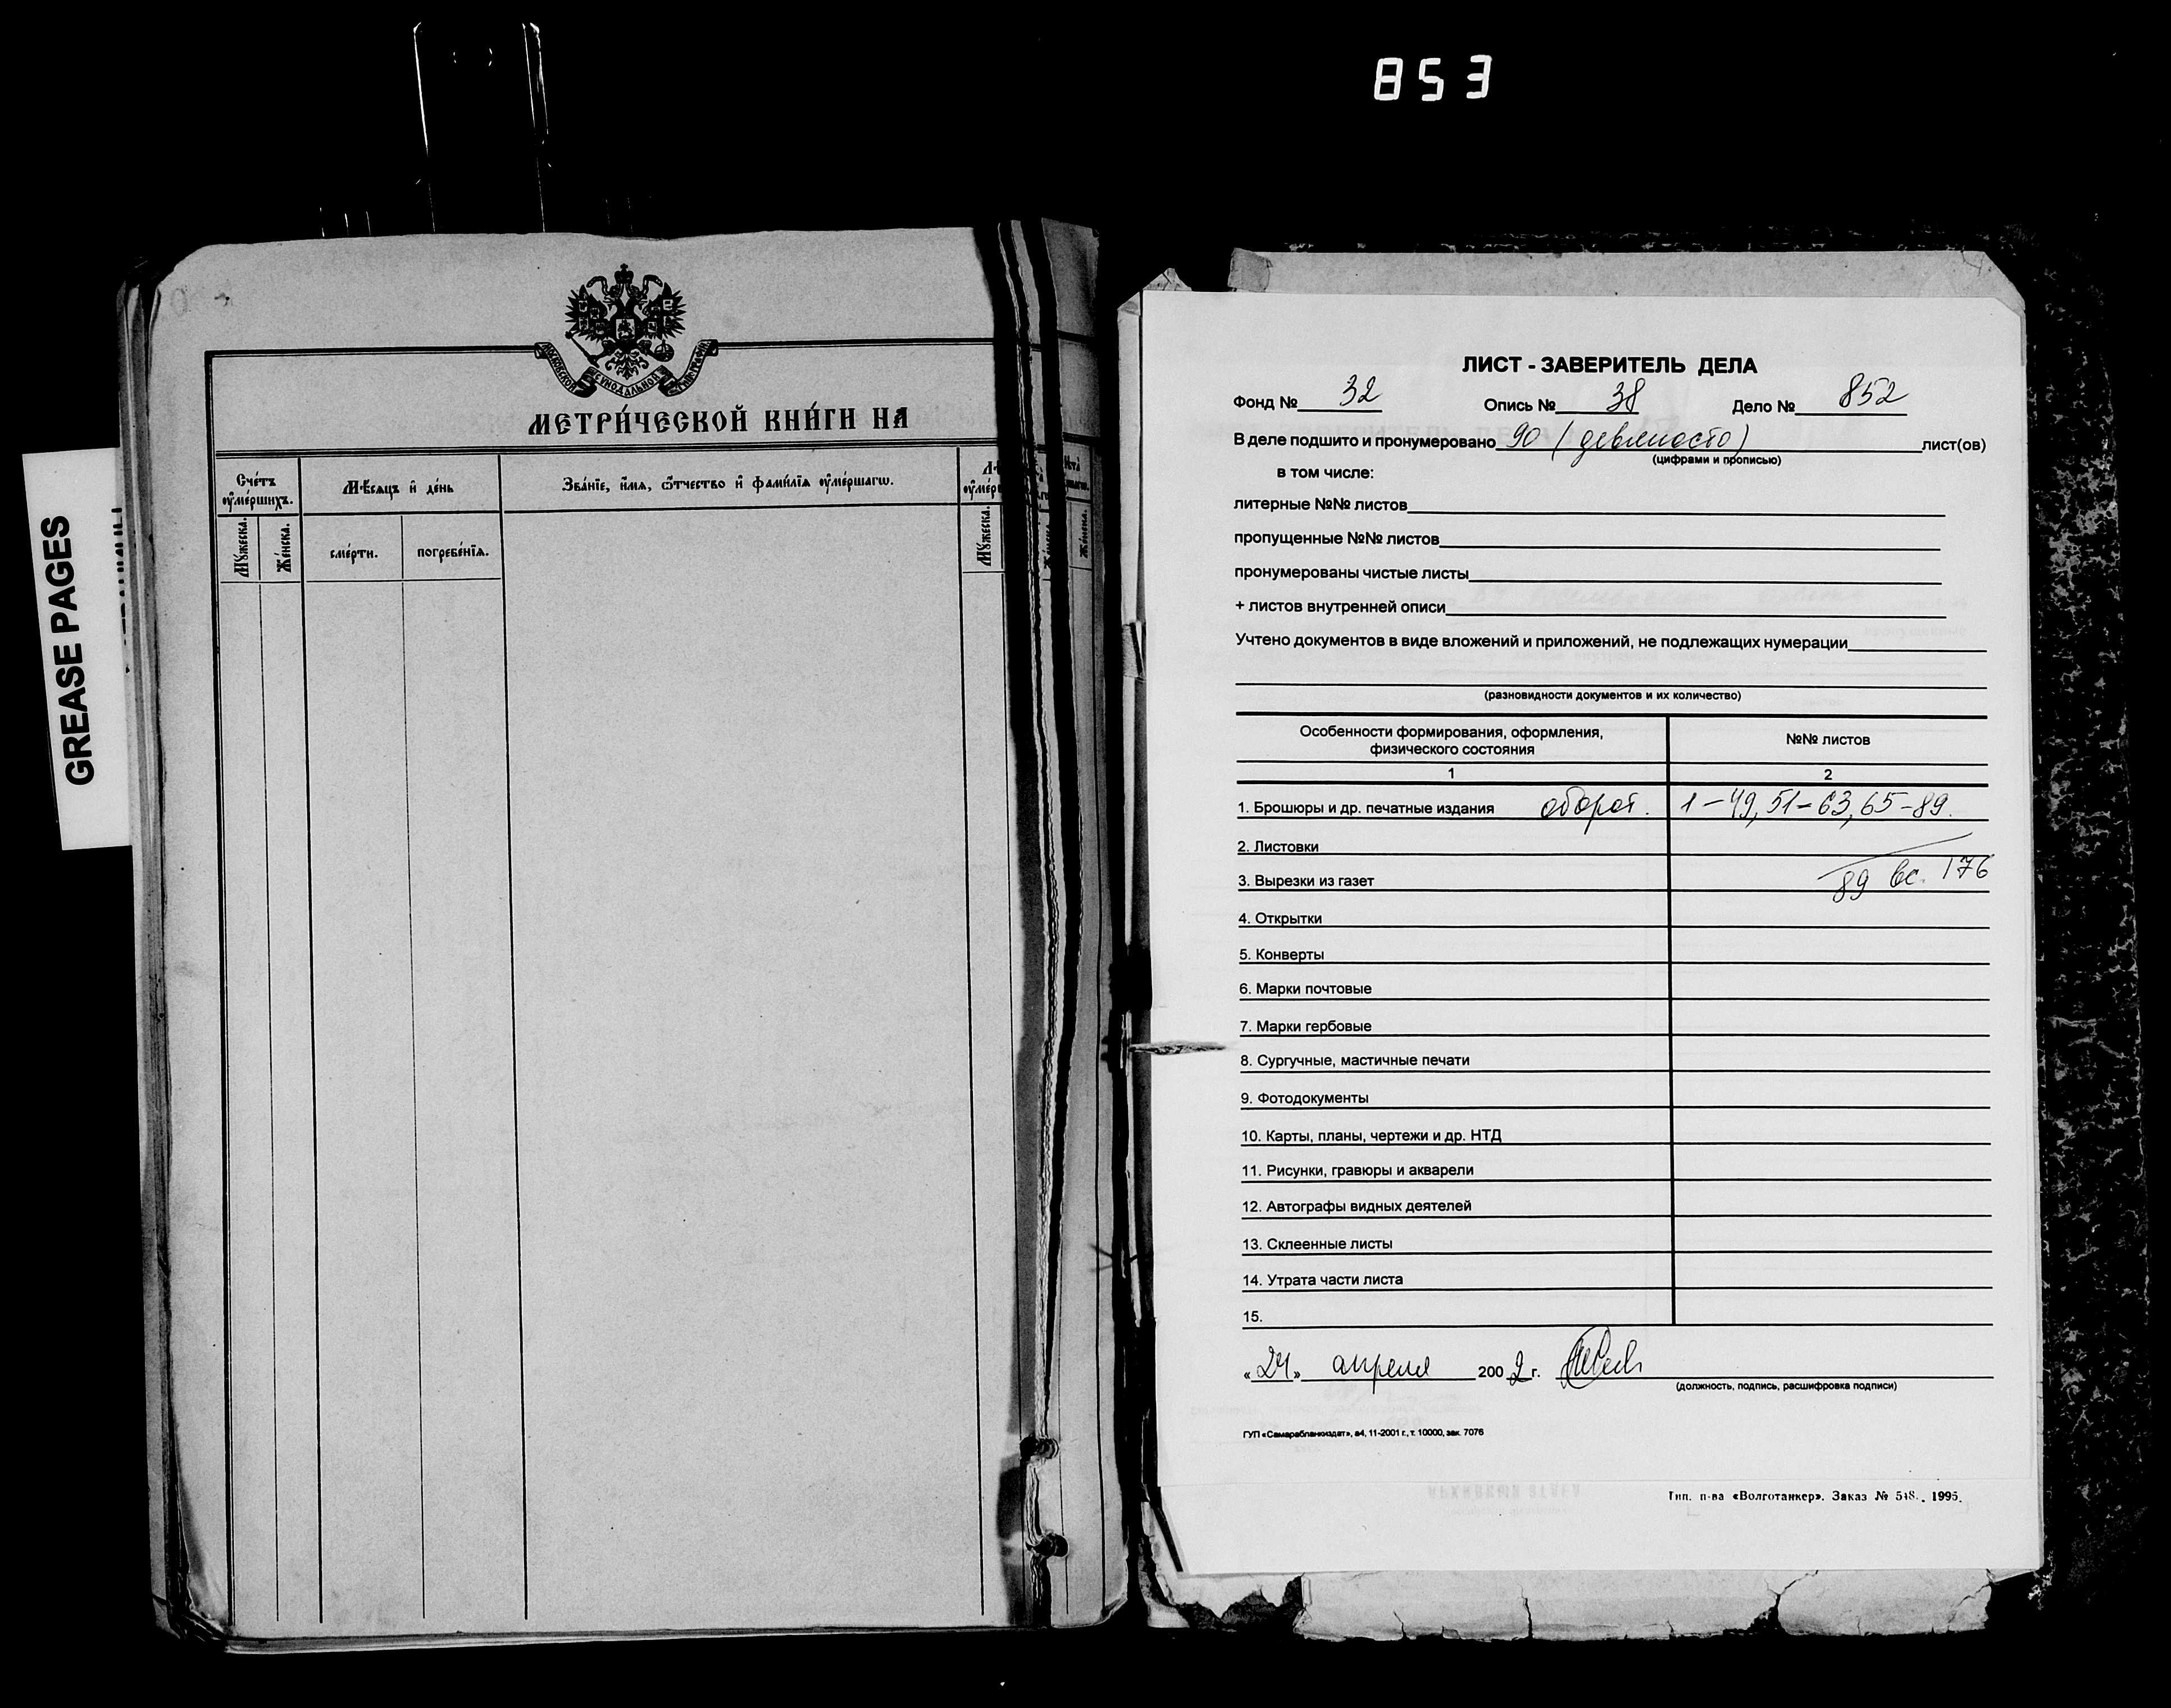 853
GREASE PAGES
МОСКОВСКОЙ СѴНОДАЛЬНОЙ
МЕТРИ́ЧЕСКОЙ КНИ́ГИ НА
Счéтъ ᲂу҆мéршихъ.
Мѣ́сяцъ и҆ дéнь
Звáніе, и҆́мя, ѻ҆́тчество и҆ фами́лія ᲂу҆мéршагѡ.
Мꙋ́жеска.
Жéнска.
смéрти.
погребéнїѧ.
Мꙋ́жеска.
Жéнска.
Жéнска.
ЛИСТ - ЗАВЕРИТЕЛЬ ДЕЛА
Фонд № 32 Опись № 38 Дело № 852
В деле подшито и пронумеровано 90 (девяносто) лист(ов)
(цифрами и прописью)
в том числе:
литерные №№ листов
пропущенные №№ листов
пронумерованы чистые листы
+ листов внутренней описи
Учтено документов в виде вложений и приложений, не подлежащих нумерации
(разновидности документов и их количество)
Особенности формирования, оформления,
физического состояния
№№ листов
1 2
1. Брошюры и др. печатные издания оборот. 1-49, 51-63, 65-89.
2. Листовки
3. Вырезки из газет 89 вс. 176
4. Открытки
5. Конверты
6. Марки почтовые
7. Марки гербовые
8. Сургучные, мастичные печати
9. Фотодокументы
10. Карты, планы, чертежи и др. НТД
11. Рисунки, гравюры и акварели
12. Автографы видных деятелей
13. Склеенные листы
14. Утрата части листа
15.
«24» апреля 2002 г.
(должность, подпись, расшифровка подписи)
ГУП «Самарабланкиздат», а4, 11-2001 г., т. 10000, зак. 7076
Тип. п-ва «Волготанкер». Заказ № 548. 1995.